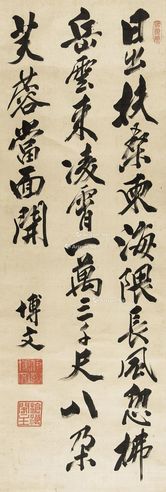 日出扶桑東海隈長風忽拂
岳雲來凌霄一萬三千尺八朵
芙蓉當面開
博文